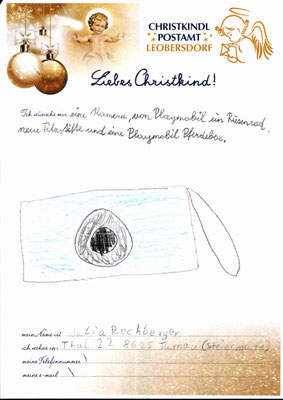 CHRISTKINDL
POSTAMT
LEOBERSDORF
Liebes Christkind!
Ich wünsche mir eine Kamera, von Playmobil ein Riesenrad,
neue Filzstifte und eine Playmobil Pferdebox.
mein Name ist Julia Rechberger
ich wohne in Thal 22 8625 Turnau (Steiermark)
meine Telefonnummer \
meine e-mail \